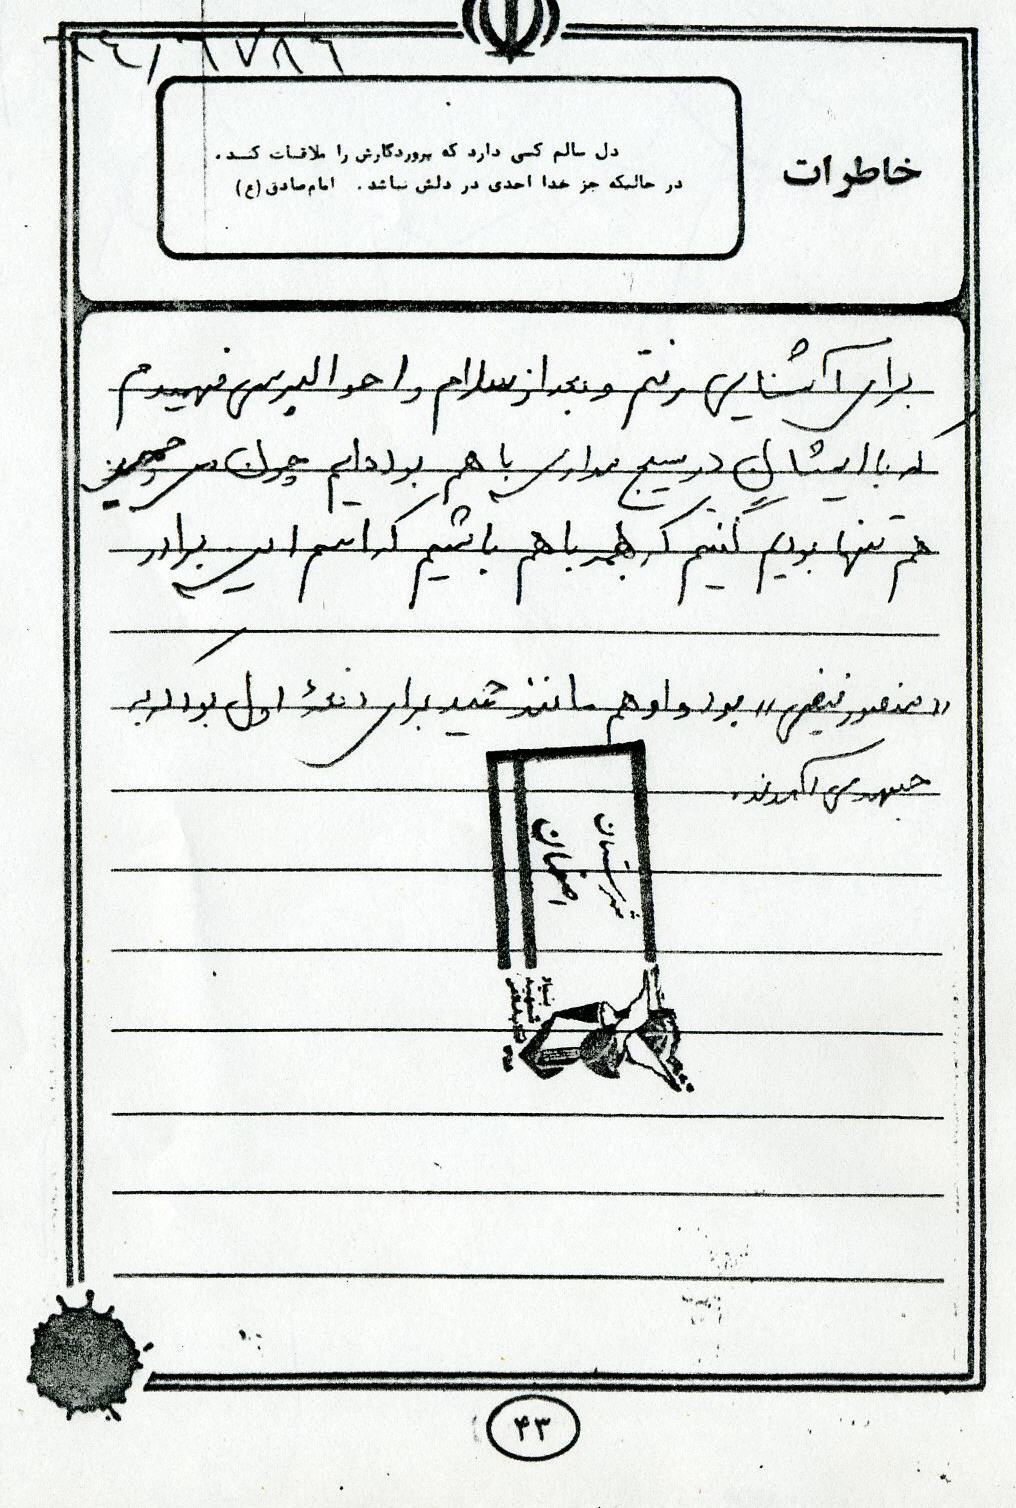 ۲۴/۶۷۸۶
خاطرات
دل سالم کسی دارد که پروردگارش را ملاقات کند.
در حالیکه جز خدا احدی در دلش نباشد. امام صادق (ع)
برای آشنایی رفتم و بعد از سلام و احوالپرسی فهمیدم
که با ایشان در بسیج مداری با هم بوده‌ایم چون من و حمید
هم تنها بودیم گفتیم که همه با هم باشیم که اسم این برادر
«منصور فیضی» بود و او هم مانند حمید برای دفعهٔ اول بود که به
جبهه می‌آمدند.
شهرستان
اصفهان
۴۳